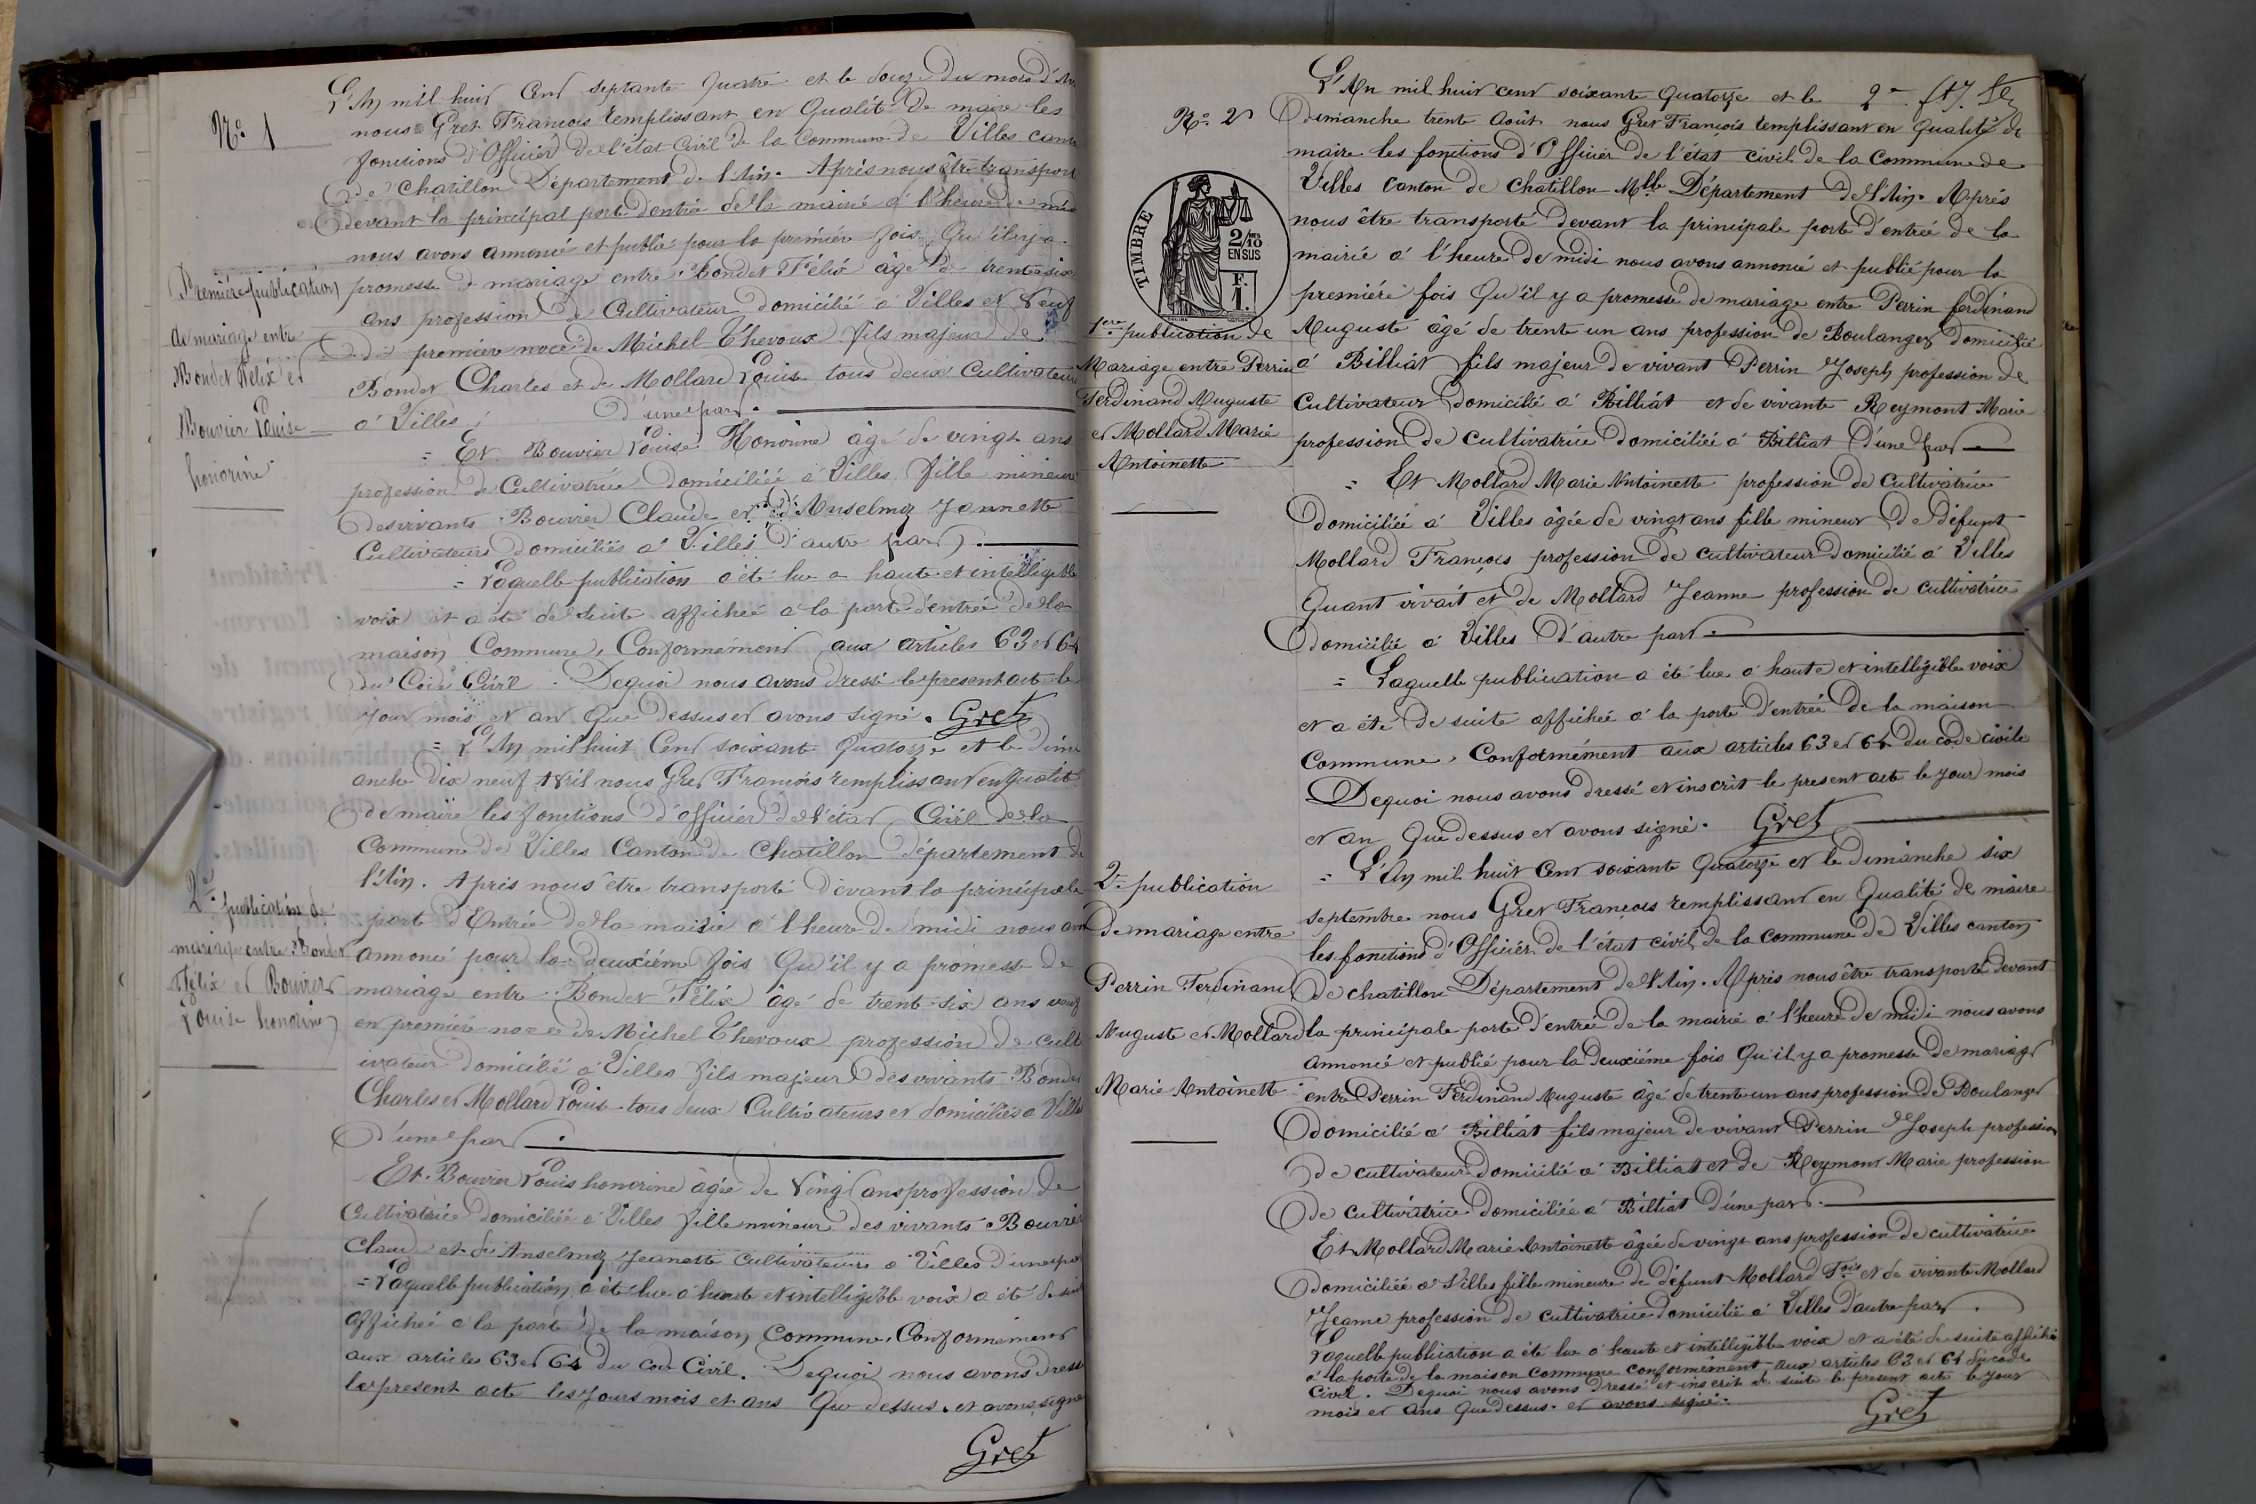 N° 1
L'An mil huit Cent septante quatre et le douze du mois d'Av
nous Gret François remplissant en Qualité de maire les
fonctions d'Officier de l'état Civil de la Commune de Villes canton
de Chatillon Département de l'Ain. Après nous être transport
devant la principal porte d'entrée de la mairie à l'heure de midi
nous avons annoncé et publié pour la première fois Qu'il y a
promesse de mariage entre Bondet Félix âgé de trente-six
ans profession de Cultivateur domicilié à Villes et Veuf
de première noce de Michel Thevoux fils majeur de
Bondet Charles et de Mollard Louise tous deux Cultivateurs
à Villes, d'une part.
Première publication
de mariage entre
Bondet Félix et
Bouvier Louise
honorine
= Et Bouvier Louise Honorine âgé de vingt ans
profession de Cultivatrice domiciliée à Villes fille mineure
des vivants Bouvier Claude et d'Anselmoz Jeannette
Cultivateurs domiciliés à Villes d'autre part.
= Laquelle publication a été lue a haute et intelligible
voix et a été de suite affichée à la porte d'entrée de la
maison Commune, Conformément aux articles 63 et 64
du Code Civil. Dequoi nous avons dressé le present acte le
jour mois et an Que dessus et avons signé. Gret
= L'An mil huit Cent soixante Quatorze et le dim
anche dix neuf Avril nous Gret François remplissant en Qualité
de maire les fonctions d'officier de l'état Civil de la
Commune de Villes Canton de Chatillon département de
l'Ain. Après nous être transporté devant la principale
port d'Entrée de la mairie à l'heure de midi nous avon
annoncé pour la deuxième fois Qu'il y a promesse de
mariage entre Bondet Félix âgé de trent-six ans veuf
en première noce de Michel Thevoux profession de cult
ivateur domicilié à Villes fils majeur des vivants Bondet
Charles et Mollard Louise tous deux Cultivateurs et domiciliés a Villes
d'une part.
2e publication de
mariage entre Bondet
Félix et Bouvier
Louise honorine
Et Bouvier Louis honorine âgée de Vingt ans profession de
Cultivatrice domiciliée à Villes fille mineur des vivants Bouvier
Claude et de Anselmoz Jeanette Cultivateurs à Villes d'une par
= Laquelle publication a été lue à haute et intelligible voix a été de suit
affichée a la porte de la maison Commune, Conformément
aux articles 63 et 64 du Code Civil. Dequoi nous avons dress
le present acte les jours mois et ans Que dessus. et avons signé
Gret
N° 2
2e
TIMBRE
2/10
EN SUS
F.
1.
L'An mil huit cent soixante Quatorze et le
dimanche trente Août nous Gret François remplissant en Qualité de
maire les fonctions d'Officier de l'état civil de la Commune de
Villes Canton de Chatillon Mlle Département de l'Ain. Après
nous être transporté devant la principale porte d'entrée de la
mairié à l'heure de midi nous avons annoncé et publié pour la
première fois Qu'il y a promesse de mariage entre Perrin ferdinand
Auguste âgé de trente un ans profession de Boulanger domicilié
à Billiat fils majeur de vivant Perrin Joseph profession de
Cultivateur domicilié à Billiat et de vivante Reymont Marie
profession de cultivatrice domiciliée à Billiat d'une part
1ere publication de
Mariage entre Perrin
Ferdinand Auguste
et Mollard Marie
Antoinette
= Et Mollard Marie Antoinette profession de Cultivatrice
domiciliée à Villes âgée de vingt ans fille mineur de défunt
Mollard François profession de cultivateur domicilié à Villes
Quant vivait et de Mollard Jeanne profession de cultivatrice
domicilié à Villes d'autre part.
= Laquelle publication a été lue à haute et intelligible voix
et a été de suite affichée à la porte d'entrée de la maison
Commune, Conformément aux articles 63 et 64 du code civile
Dequoi nous avons dressé et inscrit le present acte le jour mois
et an Que dessus et avons signé. Gret
= L'An mil huit Cent soixante Quatorze et le dimanche six
septembre nous Gret François remplissant en Qualité de maire
les fonctions d'Officier de l'état civil de la commune de Villes canton
de chatillon Département de l'Ain. Après nous être transporté devant
la principale porte d'entrée de la mairié à l'heure de midi nous avons
annoncé et publié pour la deuxiéme fois Qu'il y a promesse de mariage
entre Perrin Ferdinand Auguste âgé de trente un ans profession de Boulanger
domicilié à Billiat fils majeur de vivant Perrin Joseph profession
de cultivateur domicilié à Billiat et de Reymont Marie profession
de cultivatrice domiciliée à Billiat d'une part.
2e publication
de mariage entre
Perrin Ferdinand
Auguste et Mollard
Marie Antoinette
Et Mollard Marie Antoinette âgée de vingt ans profession de cultivatrice
domiciliée à Villes fille mineure de défunt Mollard Fois et de vivante Mollard
Jeanne profession de cultivatrice domicilié à Villes d'autre part.
Laquelle publication a été lue à haute et intelligible voix et a été de suite affichée
à la porte de la maison commune conformément aux articles 63 et 64 du code
Civil. Dequoi nous avons dressé et inscrit de suite le present acte le jour
mois et ans Que dessus. et avons signé.
Gret